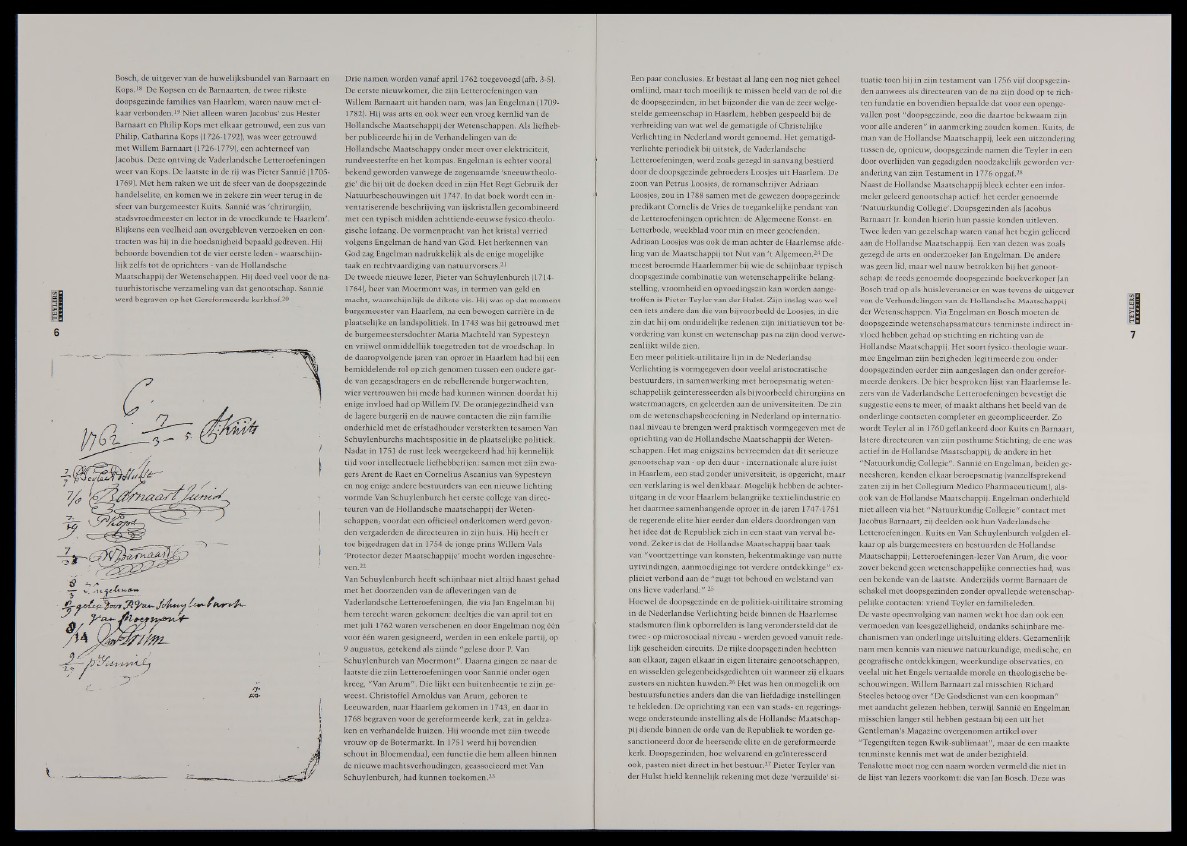 Bosch, de uitgever van de huwelijksbundel van Barnaart en
Kops.¹⁸ De Kopsen en de Barnaarten, de twee rijkste
doopsgezinde families van Haarlem, waren nauw met el-
kaar verbonden.¹⁹ Niet alleen waren Jacobus' zus Hester
Barnaart en Philip Kops met elkaar getrouwd, een zus van
Philip, Catharina Kops (1726-1792), was weer getrouwd
met Willem Barnaart (1726-1779), een achterneef van
Jacobus. Deze ontving de Vaderlandsche Letteroefeningen
weer van Kops. De laatste in de rij was Pieter Sannié (1705-
1769). Met hem raken we uit de sfeer van de doopsgezinde
handelselite, en komen we in zekere zin weer terug in de
sfeer van burgemeester Kuits. Sannié was 'chirurgijn,
stadsvroedmeester en lector in de vroedkunde te Haarlem'.
Blijkens een veelheid aan overgebleven verzoeken en con-
tracten was hij in die hoedanigheid bepaald gedreven. Hij
behoorde bovendien tot de vier eerste leden - waarschijn-
lijk zelfs tot de oprichters - van de Hollandsche
Maatschappij der Wetenschappen. Hij deed veel voor de na-
tuurhistorische verzameling van dat genootschap. Sannié
werd begraven op het Gereformeerde kerkhof.²⁰
TEYLERS
MAGAZIJN
6
C.
1762 7/3 - 5. Kuits
P. Teyler vd Hulst
7/10 J Barnaart Junior
7/19. P Kops
7/28 W Barnaart
8/5 J. Engelman
gelesen door P. van Schuylenburch
van Moermont
8/14 Van Arum
9/ p Sannié
Drie namen worden vanaf april 1762 toegevoegd (afb. 3-5).
De eerste nieuwkomer, die zijn Letteroefeningen van
Willem Barnaart uit handen nam, was Jan Engelman (1709-
1782). Hij was arts en ook weer een vroeg kernlid van de
Hollandsche Maatschappij der Wetenschappen. Als liefheb-
ber publiceerde hij in de Verhandelingen van de
Hollandsche Maatschappy onder meer over elektriciteit,
rundveesterfte en het kompas. Engelman is echter vooral
bekend geworden vanwege de zogenaamde 'sneeuwtheolo-
gie' die hij uit de doeken deed in zijn Het Regt Gebruik der
Natuurbeschouwingen uit 1747. In dat boek wordt een in-
ventariserende beschrijving van ijskristallen gecombineerd
met een typisch midden achttiende-eeuwse fysico-theolo-
gische lofzang. De vormenpracht van het kristal verried
volgens Engelman de hand van God. Het herkennen van
God zag Engelman nadrukkelijk als de enige mogelijke
taak en rechtvaardiging van natuurvorsers.²¹
De tweede nieuwe lezer, Pieter van Schuylenburch (1714-
1764), heer van Moermont was, in termen van geld en
macht, waarschijnlijk de dikste vis. Hij was op dat moment
burgemeester van Haarlem, na een bewogen carrière in de
plaatselijke en landspolitiek. In 1743 was hij getrouwd met
de burgemeestersdochter Maria Machteld van Sypesteyn
en vrijwel onmiddellijk toegetreden tot de vroedschap. In
de daaropvolgende jaren van oproer in Haarlem had hij een
bemiddelende rol op zich genomen tussen een oudere gar-
de van gezagsdragers en de rebellerende burgerwachten,
wier vertrouwen hij mede had kunnen winnen doordat hij
enige invloed had op Willem IV. De oranjegezindheid van
de lagere burgerij en de nauwe contacten die zijn familie
onderhield met de erfstadhouder versterkten tesamen Van
Schuylenburchs machtspositie in de plaatselijke politiek.
Nadat in 1751 de rust leek weergekeerd had hij kennelijk
tijd voor intellectuele liefhebberijen: samen met zijn zwa-
gers Arent de Raet en Cornelius Ascanius van Sypesteyn
en nog enige andere bestuurders van een nieuwe lichting
vormde Van Schuylenburch het eerste college van direc-
teuren van de Hollandsche maatschappij der Weten-
schappen, voordat een officieel onderkomen werd gevon-
den vergaderden de directeuren in zijn huis. Hij heeft er
toe bijgedragen dat in 1754 de jonge prins Willem Vals
'Protector dezer Maatschappije' mocht worden ingeschre-
ven.²²
Van Schuylenburch heeft schijnbaar niet altijd haast gehad
met het doorzenden van de afleveringen van de
Vaderlandsche Letteroefeningen, die via Jan Engelman bij
hem terecht waren gekomen: deeltjes die van april tot en
met juli 1762 waren verschenen en door Engelman nog één
voor één waren gesigneerd, werden in een enkele partij, op
9 augustus, getekend als zijnde "gelese door P. Van
Schuylenburch van Moermont". Daarna gingen ze naar de
laatste die zijn Letteroefeningen voor Sannié onder ogen
kreeg, "Van Arum". Die lijkt een buitenbeentje te zijn ge-
weest. Christoffel Arnoldus van Arum, geboren te
Leeuwarden, naar Haarlem gekomen in 1743, en daar in
1768 begraven voor de gereformeerde kerk, zat in geldza-
ken en verhandelde huizen. Hij woonde met zijn tweede
vrouw op de Botermarkt. In 1751 werd hij bovendien
schout in Bloemendaal, een functie die hem alleen binnen
de nieuwe machtsverhoudingen, geassocieerd met Van
Schuylenburch, had kunnen toekomen.²³
Een paar conclusies. Er bestaat al lang een nog niet geheel
omlijnd, maar toch moeilijk te missen beeld van de rol die
de doopsgezinden, in het bijzonder die van de zeer welge-
stelde gemeenschap in Haarlem, hebben gespeeld bij de
verbreiding van wat wel de gematigde of Christelijke
Verlichting in Nederland wordt genoemd. Het gematigd-
verlichte periodiek bij uitstek, de Vaderlandsche
Letteroefeningen, werd zoals gezegd in aanvang bestierd
door de doopsgezinde gebroeders Loosjes uit Haarlem. De
zoon van Petrus Loosjes, de romanschrijver Adriaan
Loosjes, zou in 1788 samen met de gewezen doopsgezinde
predikant Cornelis de Vries de toegankelijke pendant van
de Letteroefeningen oprichten: de Algemeene Konst- en
Letterbode, weekblad voor min en meer geoefenden.
Adriaan Loosjes was ook de man achter de Haarlemse afde-
ling van de Maatschappij tot Nut van 't Algemeen.²⁴ De
meest beroemde Haarlemmer bij wie de schijnbaar typisch
doopsgezinde combinatie van wetenschappelijke belang-
stelling, vroomheid en opvoedingszin kan worden aange-
troffen is Pieter Teyler van der Hulst. Zijn inslag was wel
een iets andere dan die van bijvoorbeeld de Loosjes, in die
zin dat hij om onduidelijke redenen zijn initiatieven tot be-
vordering van kunst en wetenschap pas na zijn dood verwe-
zenlijkt wilde zien.
Een meer politiek-utilitaire lijn in de Nederlandse
Verlichting is vormgegeven door veelal aristocratische
bestuurders, in samenwerking met beroepsmatig weten-
schappelijk geïnteresseerden als bijvoorbeeld chirurgijns en
watermakigers, en geleerden aan de universiteiten. De zin
om de wetenschapsbeoefening in Nederland op internatio-
naal niveau te brengen werd praktisch vormgegeven met de
oprichting van de Hollandsche Maatschappij der Weten-
schappen. Het mag enigszins bevreemden dat dit serieuze
genootschap van - op den duur - internationale allure juist
in Haarlem, een stad zonder universiteit, is opgericht, maar
een verklaring is wel denkbaar. Mogelijk hebben de achter-
uitgang in de voor Haarlem belangrijke textielindustrie en
het daarmee samenhangende oproer in de jaren 1747-1751
de regerende elite hier eerder dan elders doordrongen van
het idee dat de Republiek zich in een staat van verval be-
vond. Zeker is dat de Hollandse Maatschappij haar taak
van "voortzettinge van konsten, bekentmakinge van nutte
uytvindingen, aanmoediginge tot verdere ontdekkinge" ex-
pliciet verbond aan de "zugt tot behoud en welstand van
ons lieve vaderland." ²⁵
Hoewel de doopsgezinde en de politiek-utilitaire stroming
in de Nederlandse Verlichting beide binnen de Haarlemse
stadsmuren flink opborrelden is lang verondersteld dat de
twee - op microsociaal niveau - werden gevoed vanuit rede-
lijk gescheiden circuits. De rijke doopsgezinden hechtten
aan elkaar, zagen elkaar in eigen literaire genootschappen,
en wisselden gelegenheidsgedichten uit wanneer zij elkaars
zusters en nichten huwden.²⁶ Het was hen onmogelijk om
bestuursfuncties anders dan die van liefdadige instellingen
te bekleden. De oprichting van een van stads- en regerings-
wege ondersteunde instelling als de Hollandse Maatschap-
pij diende binnen de orde van de Republiek te worden ge-
sanctioneerd door de heersende elite en de gereformeerde
kerk. Doopsgezinden, hoe welvarend en geïnteresseerd
ook, pasten niet direct in het bestuur.²⁷ Pieter Teyler van
der Hulst hield kennelijk rekening met deze 'verzuilde' si-
tuatie toen hij in zijn testament van 1756 vijf doopsgezin-
den aanwees als directeuren van de na zijn dood op te rich-
ten fundatie en bovendien bepaalde dat voor een openge-
vallen post "doopsgezinde, zoo die daartoe bekwaam zijn
voor alle anderen" in aanmerking zouden komen. Kuits, de
man van de Hollandse Maatschappij, leek een uitzondering
tussen de, opnieuw, doopsgezinde namen die Teyler in een
door overlijden van gegadigden noodzakelijk geworden ver-
andering van zijn Testament in 1776 opgaf.²⁸
Naast de Hollandse Maatschappij bleek echter een infor-
meler geleerd genootschap actief: het eerder genoemde
'Natuurkundig Collegie'. Doopsgezinden als Jacobus
Barnaart Jr. konden hierin hun passie konden uitleven.
Twee leden van gezelschap waren vanaf het begin gelieerd
aan de Hollandse Maatschappij. Een van dezen was zoals
gezegd de arts en onderzoeker Jan Engelman. De andere
was geen lid, maar wel nauw betrokken bij het genoot-
schap: de reeds genoemde doopsgezinde boekverkoper Jan
Bosch trad op als huisleverancier en was tevens de uitgever
van de Verhandelingen van de Hollandsche Maatschappij
der Wetenschappen. Via Engelman en Bosch moeten de
doopsgezinde wetenschapsamateurs tenminste indirect in-
vloed hebben gehad op stichting en richting van de
Hollandse Maatschappij. Het soort fysico-theologie waar-
mee Engelman zijn bezigheden legitimeerde zou onder
doopsgezinden eerder zijn aangeslagen dan onder gerefor-
meerde denkers. De hier besproken lijst van Haarlemse le-
zers van de Vaderlandsche Letteroefeningen bevestigt die
suggestie eens te meer, of maakt althans het beeld van de
onderlinge contacten completer en gecompliceerder. Zo
wordt Teyler al in 1760 geflankeerd door Kuits en Barnaart,
latere directeuren van zijn posthume Stichting; de ene was
actief in de Hollandse Maatschappij, de andere in het
"Natuurkundig Collegie". Sannié en Engelman, beiden ge-
neesheren, kenden elkaar beroepsmatig (vanzelfsprekend
zaten zij in het Collegium Medico Pharmaceuticum), als-
ook van de Hollandse Maatschappij. Engelman onderhield
niet alleen via het "Natuurkundig Collegie" contact met
Jacobus Barnaart, zij deelden ook hun Vaderlandsche
Letteroefeningen. Kuits en Van Schuylenburch volgden el-
kaar op als burgemeesters en bestuurden de Hollandse
Maatschappij; Letteroefeningen-lezer Van Arum, die voor
zover bekend geen wetenschappelijke connecties had, was
een bekende van de laatste. Anderzijds vormt Barnaart de
schakel met doopsgezinden zonder opvallende wetenschap-
pelijke contacten: vriend Teyler en familieleden.
De vaste opeenvolging van namen wekt hoe dan ook een
vermoeden van leesgezelligheid, ondanks schijnbare me-
chanismen van onderlinge uitsluiting elders. Gezamenlijk
nam men kennis van nieuwe natuurkundige, medische, en
geografische ontdekkingen, weerkundige observaties, en
veelal uit het Engels vertaalde morele en theologische be-
schouwingen. Willem Barnaart zal misschien Richard
Steeles betoog over "De Godsdienst van een koopman"
met aandacht gelezen hebben, terwijl Sannié en Engelman
misschien langer stil hebben gestaan bij een uit het
Gentleman's Magazine overgenomen artikel over
"Tegengiften tegen Kwik-sublimaat", maar de een maakte
tenminste kennis met wat de ander bezighield.
Tenslotte moet nog een naam worden vermeld die niet in
de lijst van lezers voorkomt: die van Jan Bosch. Deze was
TEYLERS
MAGAZIJN
7